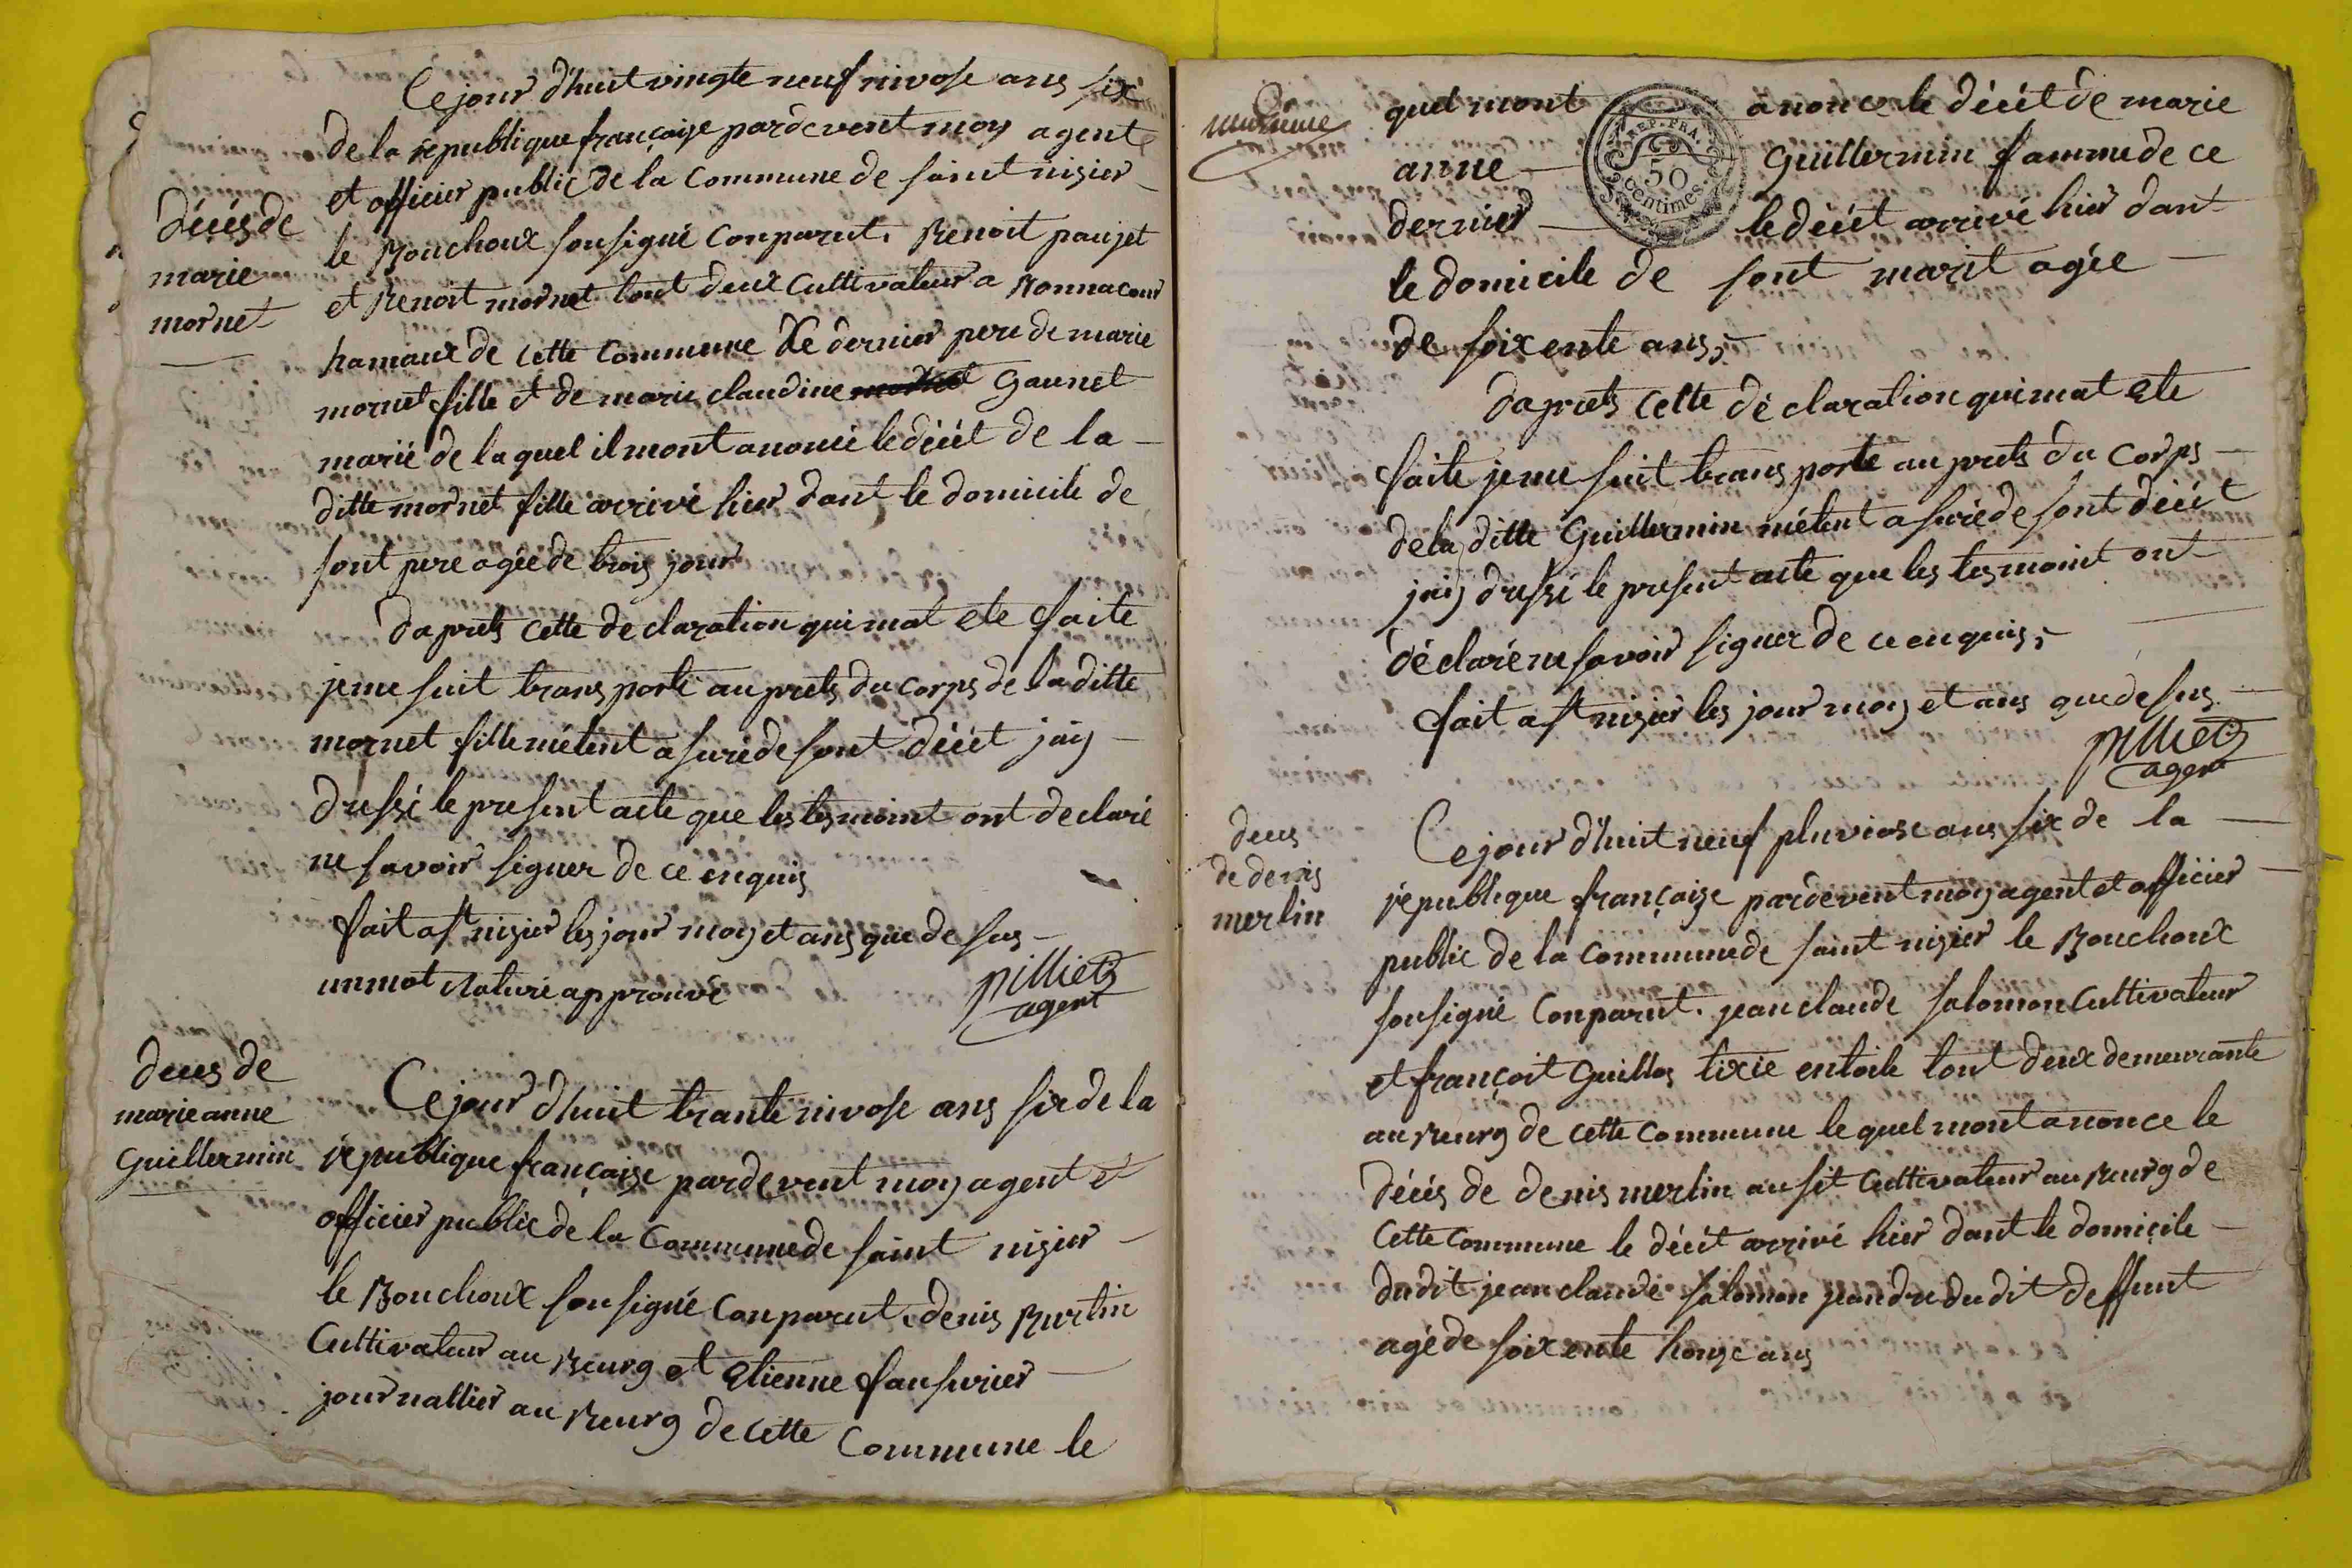 Cejour d'huit vingte neuf nivose ans six
de la republique françaize pardevent moy agent
et officier public de la Commune de saint nizier
le Bouchoux sousigné Conparut. Benoit paujet
et Benoit mornet tout deux Cultivateur a Bonnacour
hamaux de cette Commune le dernier pere de marie
mornet fille et de marie claudine Gaunet
marié de laquel il mont anoncé le décét de la
ditte mornet fille arrivé hier dant le domicile de
sont pere agée de trois jour
daprets cette declaration qui mat ete faite
jeme suit transporté auprets du corps de la ditte
mornet fille métent asuré de sont décét jaiy
dressé le present acte que les tesmoint ont declaré
ne savoir signer de ce enquis
fait a st nizier les jour moy et ans que de sus
un mot raturé approuvé
pilliet
agent
décés de
marie
mornet
deces de
marie anne
Guillermin
Cejour d'huit trante nivose ans six de la
republique françaize pardevent moy agent et
officier public de la Commune de saint nizier
le Bouchoux sousigné Conparut. denis Burtin
Cultivateur au Bourg et Etienne fausurier
journallier au Bourg de cette Commune le
quel mont anonce le décét de marie
anne Guillermin famme de ce
dernier le décét arrivé hier dant
le domicile de sont marit agée
de soixente ans,
REP. FRA.
50
centimes.
daprets cette déclaration qui mat ete
faite jeme suit transporte auprets du Corps
de la ditte Guillermin métent asuré de sont décét
jaiy dressé le present acte que les tesmoint ont
déclaré ne savoir signer de ce enquis,
fait a st nizier les jour moy et ans que de sus
pilliet
agent
deces
de denis
merlin
Cejour d'huit neuf pluviose ans six de la
republique françaize pardevent moy agent et officier
public de la Commune de saint nizier le Bouchoux
sousigné Conparut. jean claude salomon Cultivateur
et françoit Guillos tixie entoile tout deux demeurante
au Bourg de cette Commune le quel mont anonce le
décés de denis merlin ausit Cultivateur au Bourg de
Cette Commune le décét arrivé hier dant le domicile
dudit jean claude salomon jeandre dudit deffunt
agé de soixente honze ans